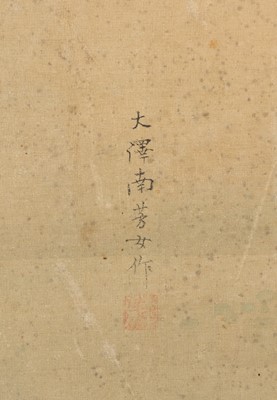 大澤南芳女作